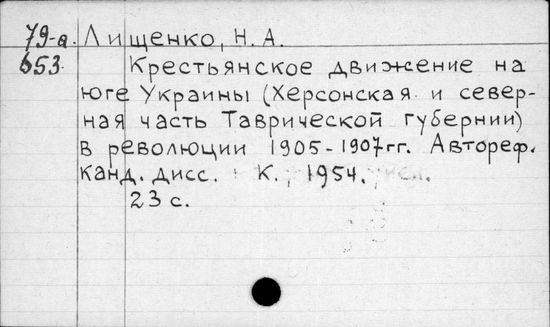 79-а. Лищенко, Н. А.
653. Крестьянское движение на
юге Украины (Херсонская и север-
ная часть Таврической губернии)
в революции 1905-1907гг. Автореф.
канд. дисс. К., 1954.
23 с.